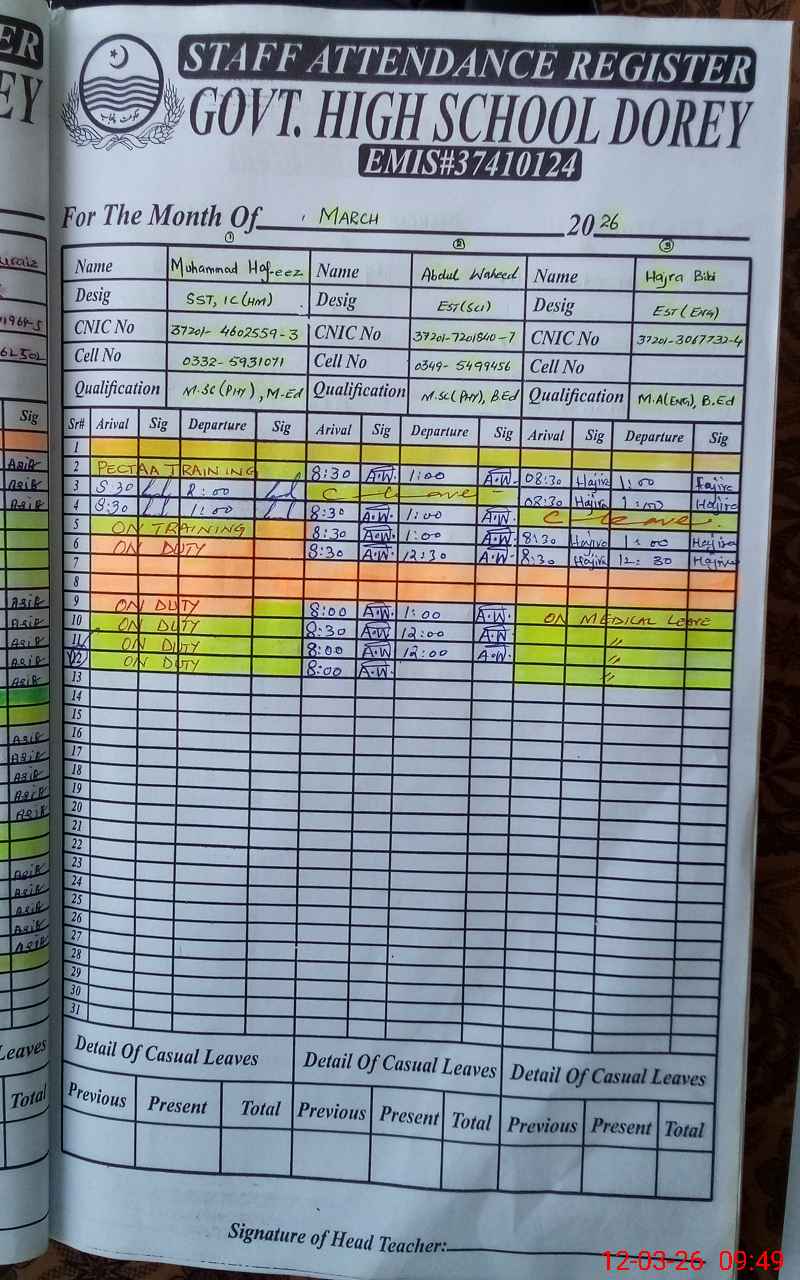 STAFF ATTENDANCE REGISTER
GOVT. HIGH SCHOOL DOREY
EMIS#37410124
For The Month Of MARCH 2026
1 2 3
Name Muhammad Hafeez Name Abdul Waheed Name Hajra Bibi
Desig SST, IC (HM) Desig EST(SCI) Desig EST (ENG)
CNIC No 37201-4602559-3 CNIC No 37201-7201840-7 CNIC No 37201-3067732-4
Cell No 0332-5931071 Cell No 0349-5499456 Cell No
Qualification M.SC (PHY), M.Ed Qualification M.SC (PHY), B.Ed Qualification M.A(ENG), B.Ed
Sr# Arival Sig Departure Sig Arival Sig Departure Sig Arival Sig Departure Sig
1
2 PECTAA TRAINING 8:30 A.W 1:00 A.W. 08:30 Hajira 1:00 Hajira
3 8:30 2:00 C-leave 08:30 Hajira 1:00 Hajira
4 8:30 1:00 8:30 A.W. 1:00 A.W. C-leave.
5 ON TRAINING 8:30 A.W. 1:00 A.W. 8:30 Hajira 1:00 Hajira
6 ON DUTY 8:30 A.W. 12:30 A.W. 8:30 Hajira 12:30 Hajira
7
8
9 ON DUTY 8:00 A.W. 1:00 A.W. ON MEDICAL LEAVE
10 ON DUTY 8:30 A.W. 12:00 A.W. "
11 ON DUTY 8:00 A.W. 12:00 A.W. "
12 ON DUTY 8:00 A.W. "
13
14
15
16
17
18
19
20
21
22
23
24
25
26
27
28
29
30
31
Detail Of Casual Leaves Detail Of Casual Leaves Detail Of Casual Leaves
Previous Present Total Previous Present Total Previous Present Total
Signature of Head Teacher:
12-03-26 09:49